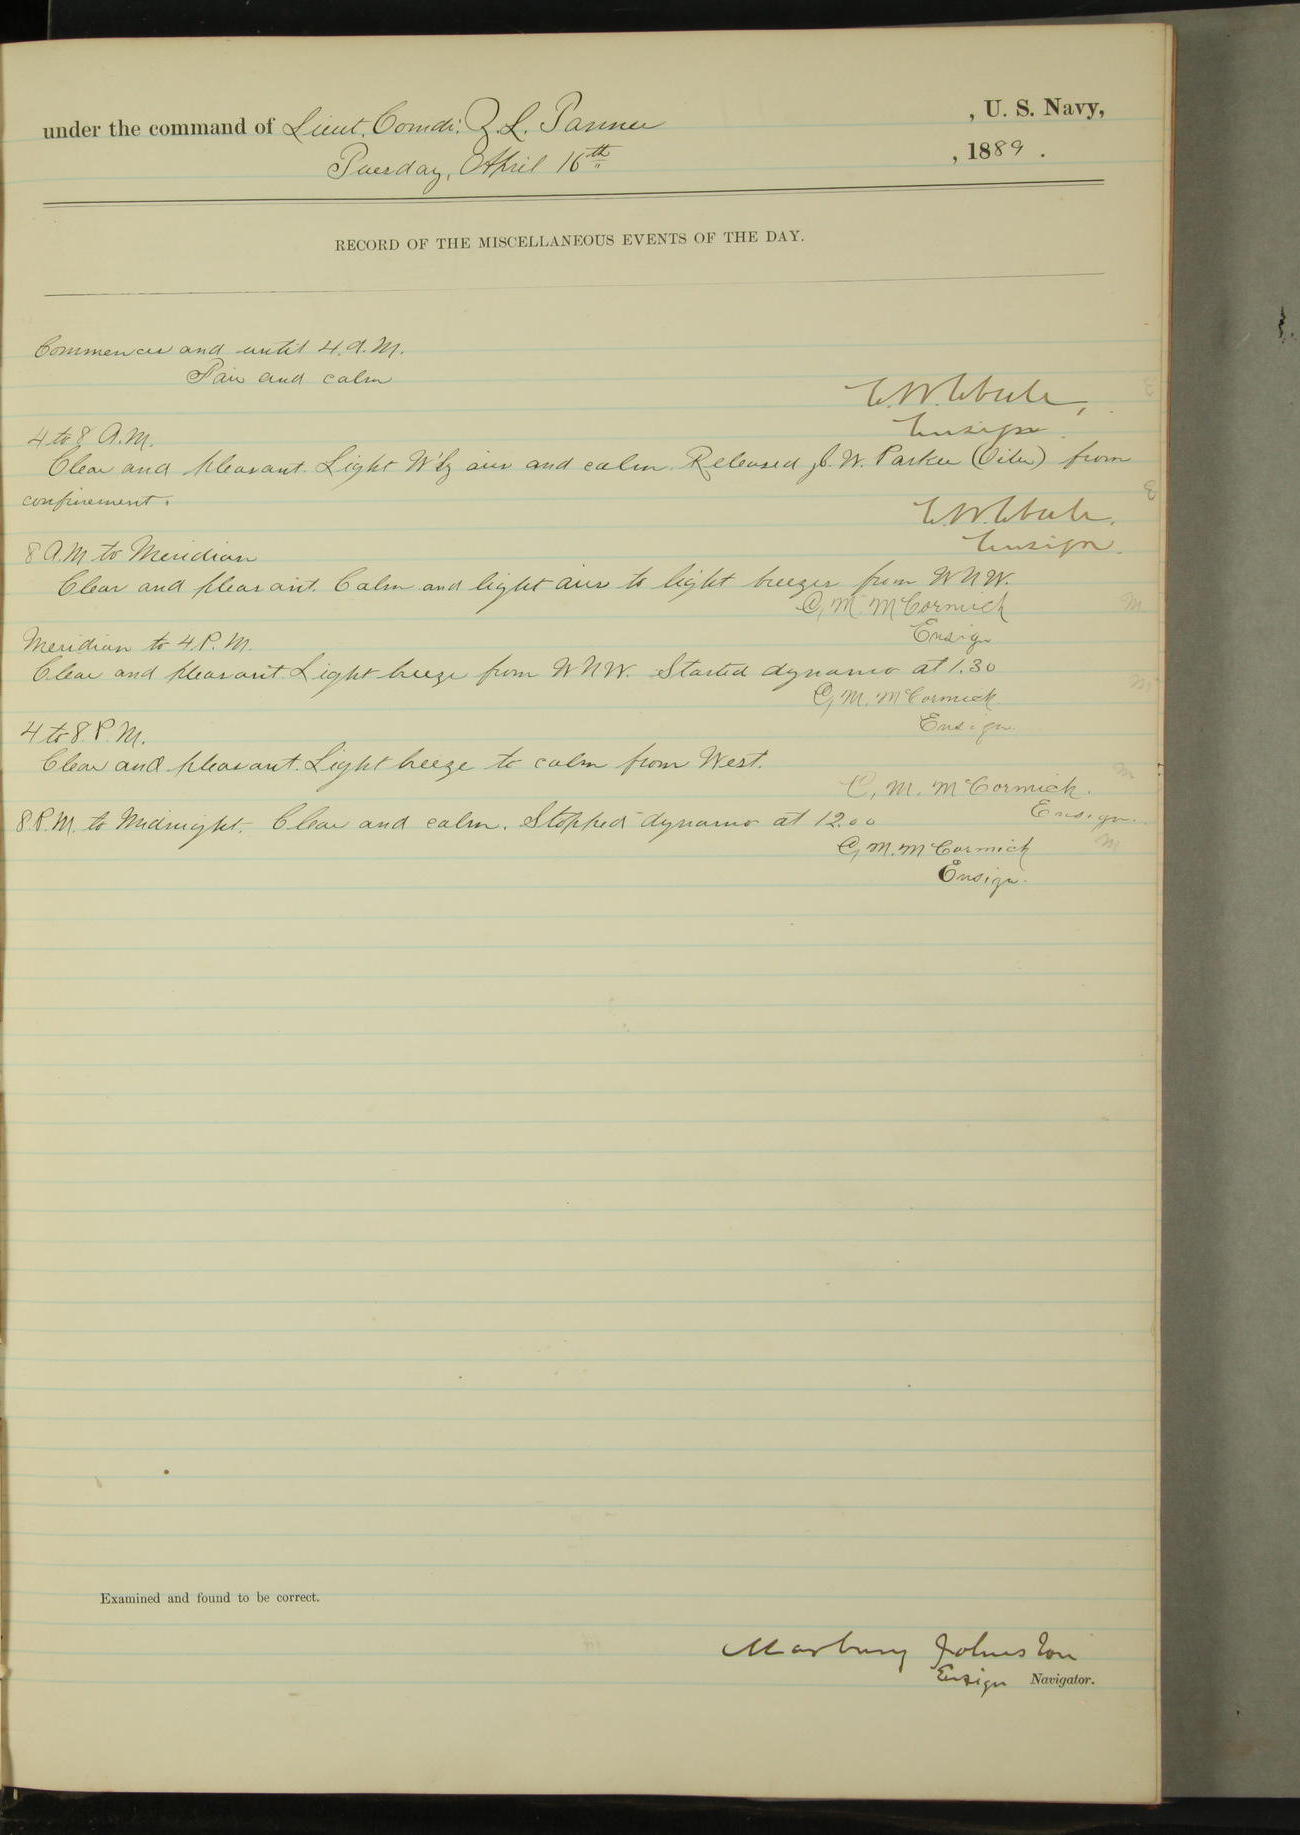 under the command of Lieut. Comdr. Z. L. Tanner, U. S. Navy,
Tuesday, April 16th, 1889.
RECORD OF THE MISCELLANEOUS EVENTS OF THE DAY.
Commences and until 4. A.M.
Fair and calm
E. W. Eberle,
Ensign.
4 to 8 A.M.
Clear and pleasant. Light W'ly airs and calm. Released J. W. Parker (Oiler) from
confinement.
E. W. Eberle.
Ensign.
8 A.M to Meridian
Clear and pleasant. Calm and light airs to light breezes from WNW.
C. M. McCormick
Ensign
Meridian to 4. P. M.
Clear and pleasant. Light breeze from WNW. Started dynamo at 1.30
C. M. McCormick
Ensign.
4 to 8. P. M.
Clear and pleasant. Light breeze to calm from West.
C. M. McCormick.
Ensign.
8 P.M. to Midnight. Clear and calm. Stopped dynamo at 12.00
C. M. McCormick
Ensign.
Examined and found to be correct.
Marbury Johnston
Ensign Navigator.